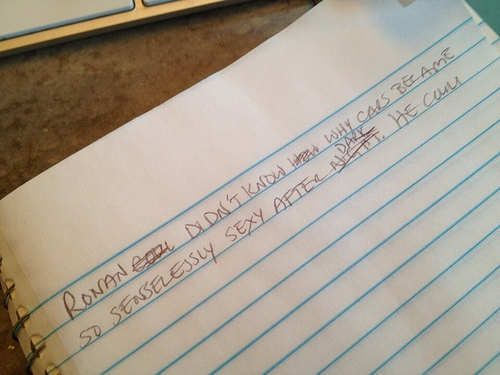 RONAN DIDN'T KNOW WHY CARS BECAME
SO SENSELESSLY SEXY AFTER DARK. HE COUL